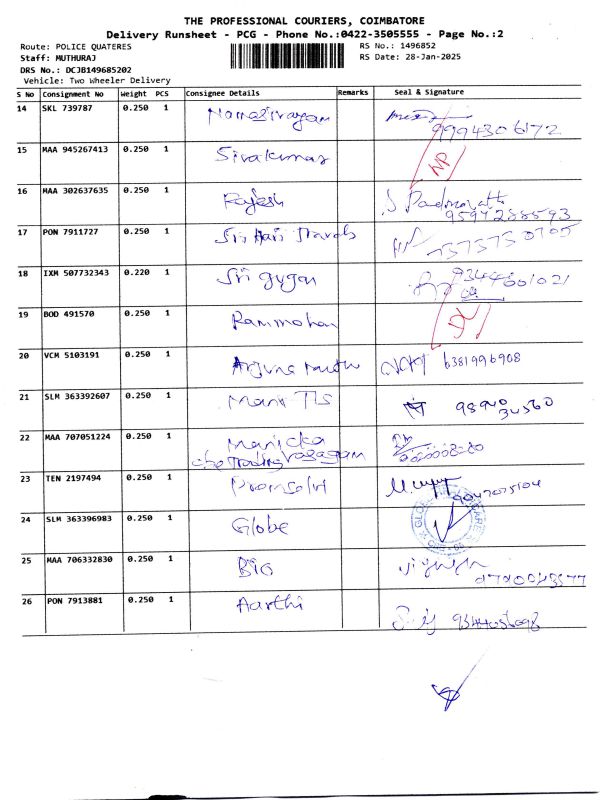 THE PROFESSIONAL COURIERS, COIMBATORE
Delivery Runsheet - PCG - Phone No.:0422-3505555 - Page No.:2
Route: POLICE QUATERES RS No.: 1496852
Staff: MUTHURAJ RS Date: 28-Jan-2025
DRS No.: DCJB149685202
Vehicle: Two Wheeler Delivery
S No Consignment No Weight PCS Consignee Details Remarks Seal & Signature
14 SKL 739787 0.250 1 Namasivayam
9994306172
15 MAA 945267413 0.250 1 Sivakumar NP
16 MAA 302637635 0.250 1 Rajesh
9597288593
17 PON 7911727 0.250 1 Sri Hari Travels
18 IXM 507732343 0.220 1 Sri gugan 9344601021
19 BOD 491570 0.250 1 Rammohan
20 VCM 5103191 0.250 1 6381996908
21 SLM 363392607 0.250 1 Mani TTS 98940
34560
22 MAA 707051224 0.250 1 Manicka
vasagam
23 TEN 2197494 0.250 1
24 SLM 363396983 0.250 1 Globe
25 MAA 706332830 0.250 1 BIG
26 PON 7913881 0.250 1 Aarthi